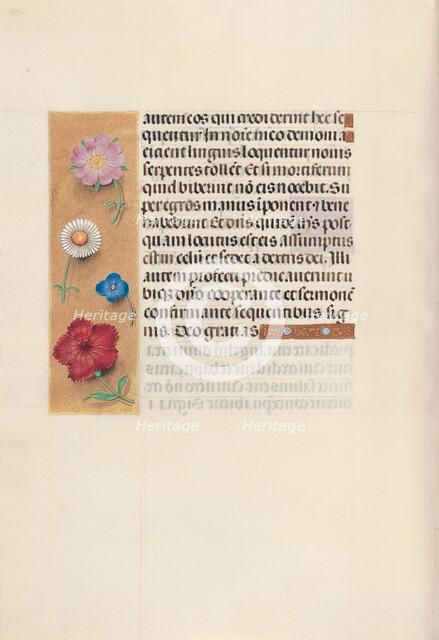 autem eos qui crediderint hec se
quentur. In noie meo demonia
eicient linguis loquentur nouis
serpentes tollent. Et si mortiferum
quid biberint nō eis nocebit. Sup
egros manus iponent et bene
habebunt. Et dns quidē ihs post
quam locutus est eis assumptus
est in celū et sedet a dextris dei. Illi
autem profecti predicauerunt u
biq; dn̄o cooperante et sermonē
confirmante sequentibus sig
nis. Deo gratias
Heritage Heritage
Heritage Heritage
Heritage Heritage